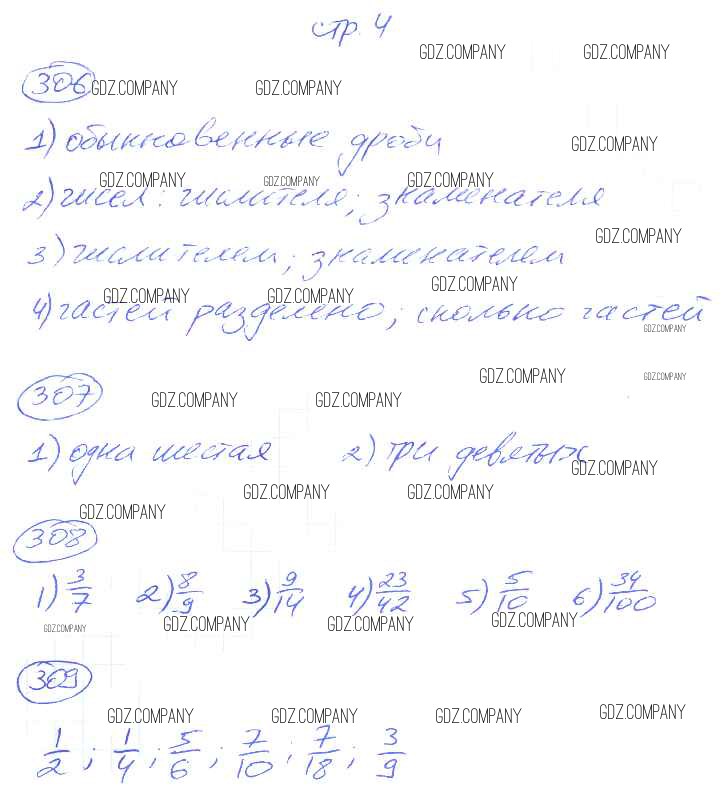 стр. 4
GDZ.COMPANY GDZ.COMPANY
306 GDZ.COMPANY GDZ.COMPANY
1) обыкновенные дроби GDZ.COMPANY
GDZ.COMPANY GDZ.COMPANY GDZ.COMPANY
2) чисел: числителя; знаменателя
GDZ.COMPANY
3) числителем; знаменателем
GDZ.COMPANY GDZ.COMPANY GDZ.COMPANY
4) частей разделено; сколько частей
GDZ.COMPANY
GDZ.COMPANY GDZ.COMPANY
307 GDZ.COMPANY GDZ.COMPANY
1) одна шестая 2) три девятых
GDZ.COMPANY
GDZ.COMPANY GDZ.COMPANY
GDZ.COMPANY
308
1) 3/7 2) 8/9 3) 9/14 4) 23/42 5) 5/10 6) 34/100
GDZ.COMPANY GDZ.COMPANY GDZ.COMPANY GDZ.COMPANY
309
GDZ.COMPANY GDZ.COMPANY GDZ.COMPANY GDZ.COMPANY
1/2 ; 1/4 ; 5/6 ; 7/10 ; 7/18 ; 3/9